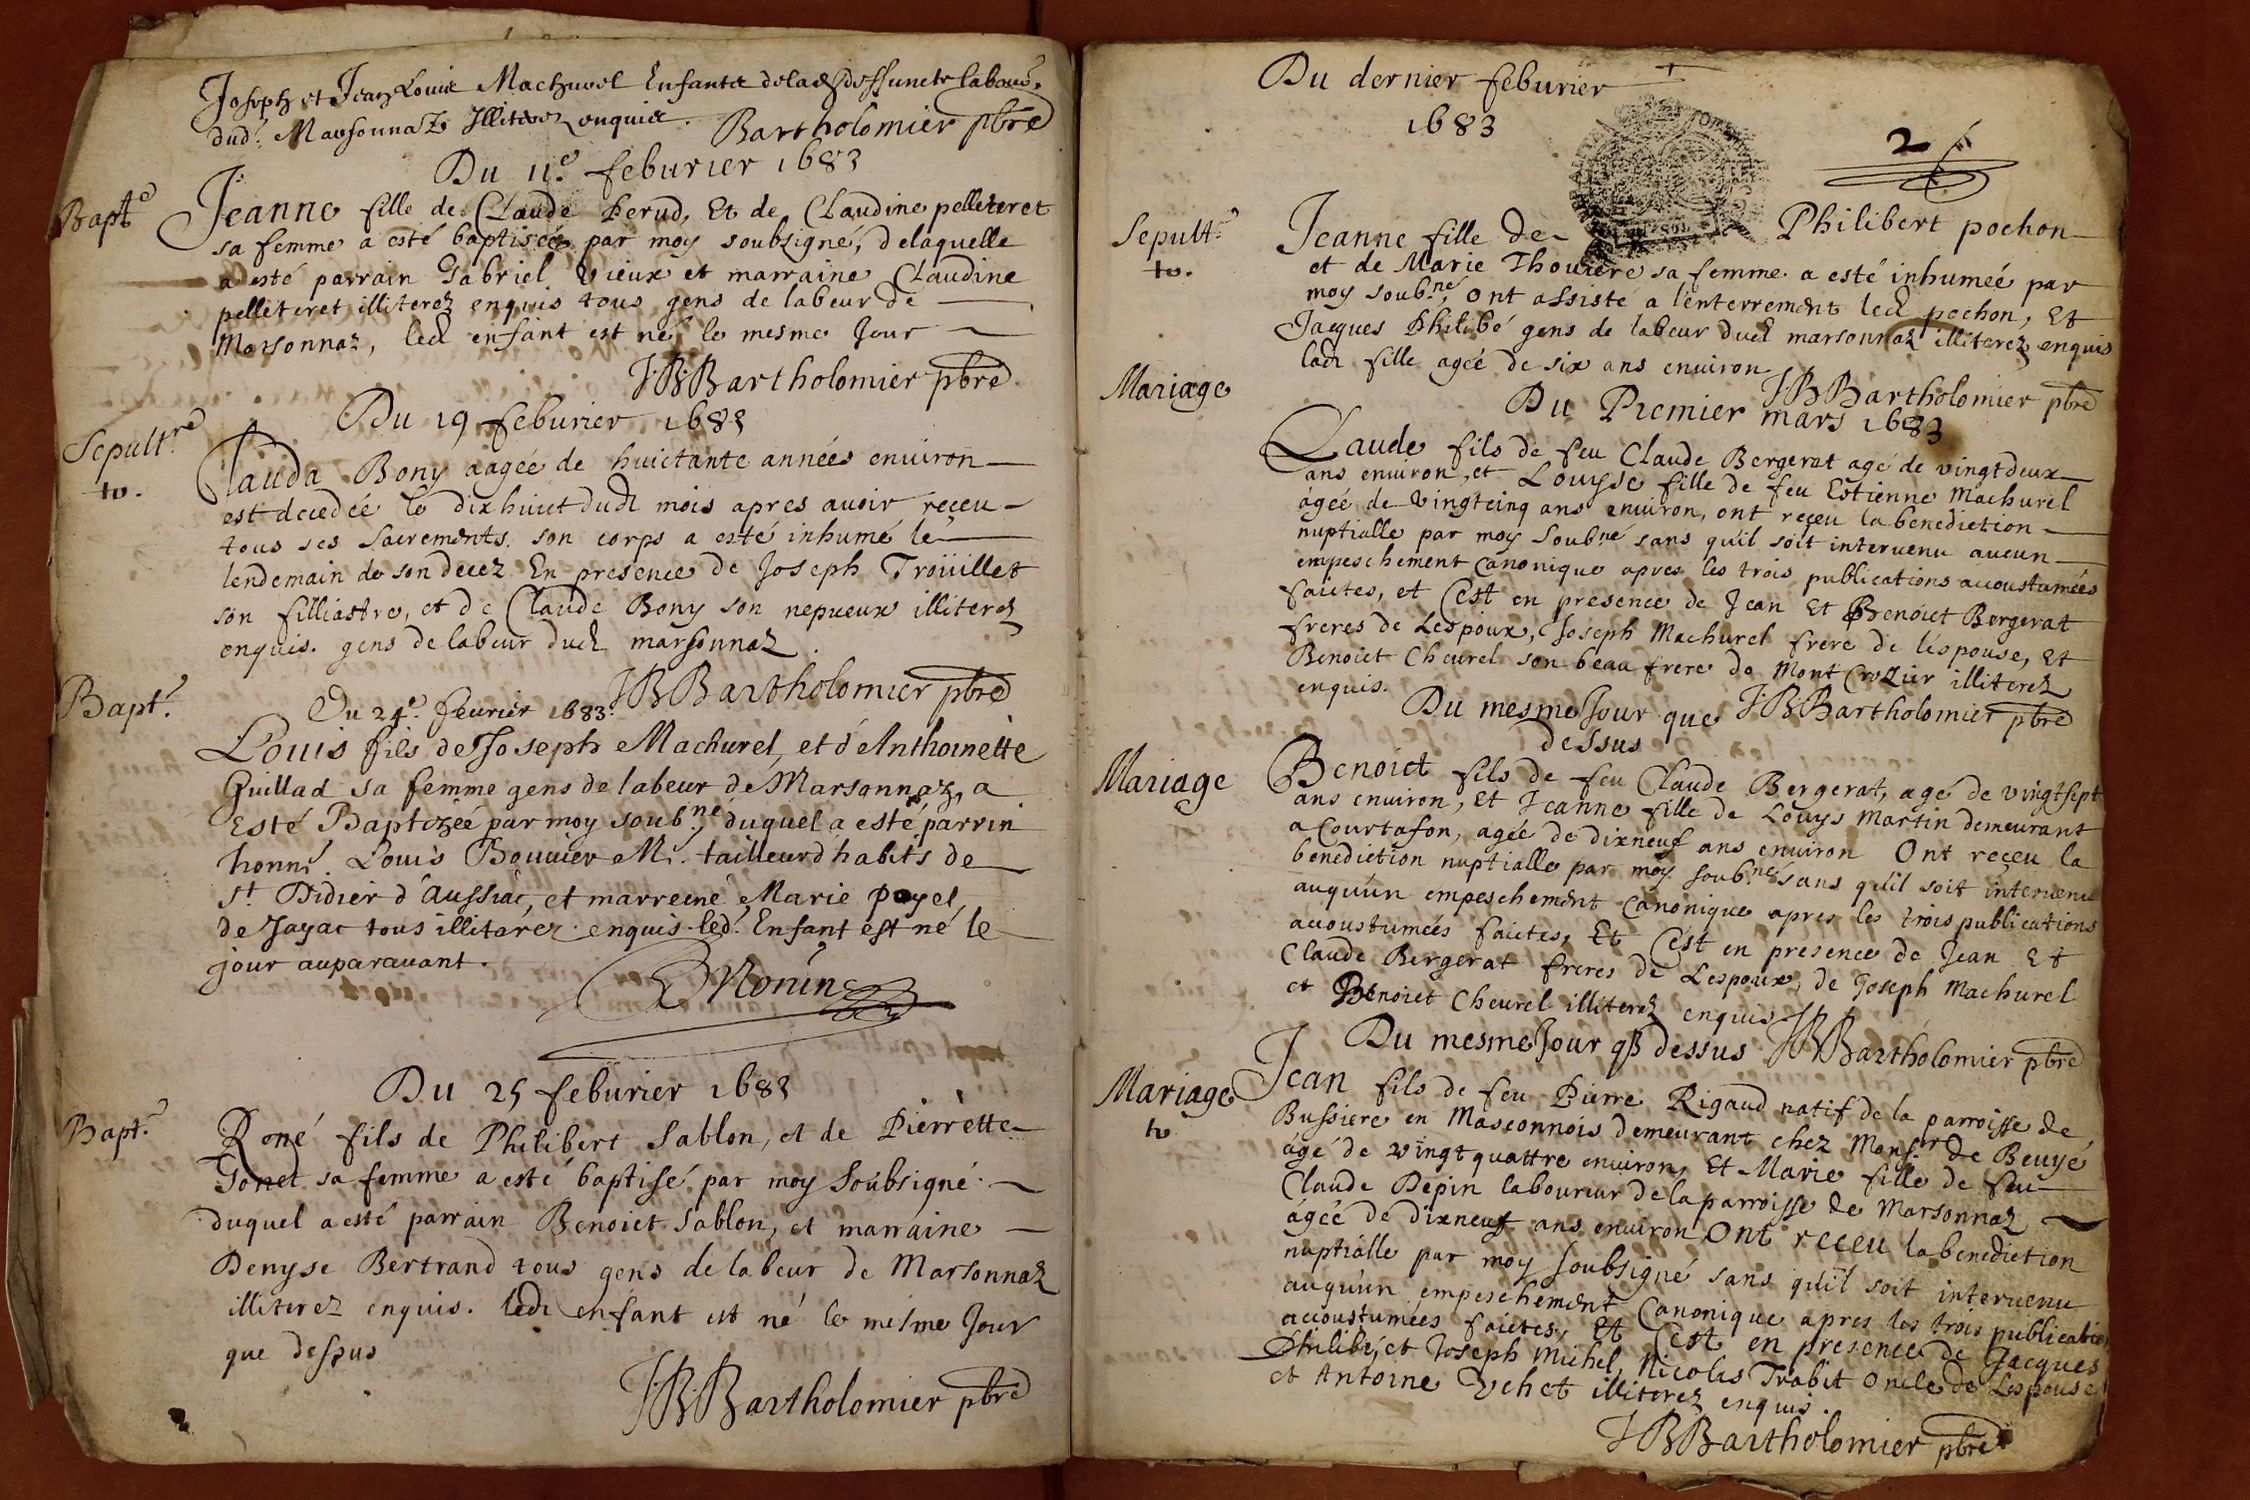 Joseph et Jean Louis Machurel Enfants de lad deffuncte labour.
dud. Marsonnaz Illiterez enquis. Bartholomier pbre
Du 11e feburier 1683
Bapte
Jeanne fille de Claude Perud, Et de Claudine pelleteret
sa femme a esté baptisée par moy soubsigné, delaquelle
a esté parrain Gabriel Vieux et marraine Claudine
pelleteret illiterez enquis tous gens de labeur de
Marsonnaz, led enfant est né le mesme Jour
J.B.Bartholomier pbre
Du 19 feburier 1683
Sepultre
to.
Clauda Bony aagée de huictante années enuiron
est decedée le dixhuict dud mois apres auoir reçeu
tous ses Sacrements. son corps a esté inhumé le
lendemain de son decez En presence de Joseph Troüillet
son filliastre, et de Claude Bony son nepueux illiterez
enquis. gens de labeur dud marsonnaz
JBBartholomier pbre
Bapt.e
Du 24e. feurier 1683.
Louis fils de Joseph Machurel, et d'Anthoinette
Guillad sa femme gens de labeur de Marsonnaz, a
Esté Baptizée par moy soub.né, duquel a esté parrin
honn.e Louis Bouuier Me. tailleur d'habits de
St Didier d'Aussiac, et marreine Marie payel
de Jayac tous illiterez enquis. led. Enfant est né le
jour auparauant.
Monin
Du 25 feburier 1683
Bapt.e
René fils de Philibert Sablon, et de Pierrette
Gonet sa femme a esté baptisé par moy Soubsigné.
duquel a esté parrain Benoict Sablon, et marraine
Denyse Bertrand tous gens de labeur de Marsonnaz
illiterez enquis. led enfant est né le mesme Jour
que dessus
J.B.Bartholomier pbre
Du dernier feburier
1683
2
Sepult.e
to.
Jeanne fille de Philibert pochon
et de Marie Thouiere sa femme a esté inhumée par
moy soub.né, ont assisté a l'enterrement led pochon, Et
Jacques Philibé gens de labeur dud marsonnaz illiterez enquis
lad fille agée de six ans enuiron
JBBartholomier pbre
Mariage
Du Premier mars 1683
Claude fils de feu Claude Bergerat agé de vingtdeux
ans enuiron, et Louyse fille de feu Estienne Machurel
agée de vingtcinq ans enuiron, ont reçeu la benediction
nuptialle par moy Soub.né sans qu'il soit interuenu aucun
empeschement Canonique apres les trois publications accoustumées
faictes, et C'est en presence de Jean Et Benoict Bergerat
freres de Lespoux, Joseph Machurel frere de l'espouse, Et
Benoict Cheurel son beau frere de Mont Crozier illiterez
enquis.
J.B.Bartholomier pbre
Du mesme Jour que
dessus
Mariage
Benoict fils de feu Claude Bergerat, agé de vingtsept
ans enuiron, Et Jeanne fille de Louys Martin demeurant
a Courtafon, agée de dixneuf ans enuiron Ont reçeu la
benediction nuptialle par moy soub.né sans qu'il soit interuenu
auquun empeschement Canonique apres les trois publications
accoustumées faictes, Et C'est en presence de Jean Et
Claude Bergerat freres de Lespoux, de Joseph Machurel
et Benoict Cheurel illiterez enquis
JBBartholomier pbre
Du mesme Jour q dessus
Mariage
to
Jean fils de feu Pierre Rigaud natif de la parroisse de
Bussiere en Masconnois demeurant chez Monsr de Beuyé
âgé de vingtquattre enuiron, Et Marie fille de feu
Claude Depin laboureur de la parroisse de Marsonnaz
âgée de dixneuf ans enuiron Ont reçeu la benediction
nuptialle par moy soubsigné sans qu'il soit interuenu
auquun empeschement Canonique apres les trois publicatio
accoustumées faictes, Et C'est en presence de Jacques
Philibé, et Joseph Michel, Nicolas Trabit oncle de Lespouse
et Antoine Vehet illiterez enquis.
JBBartholomier pbre